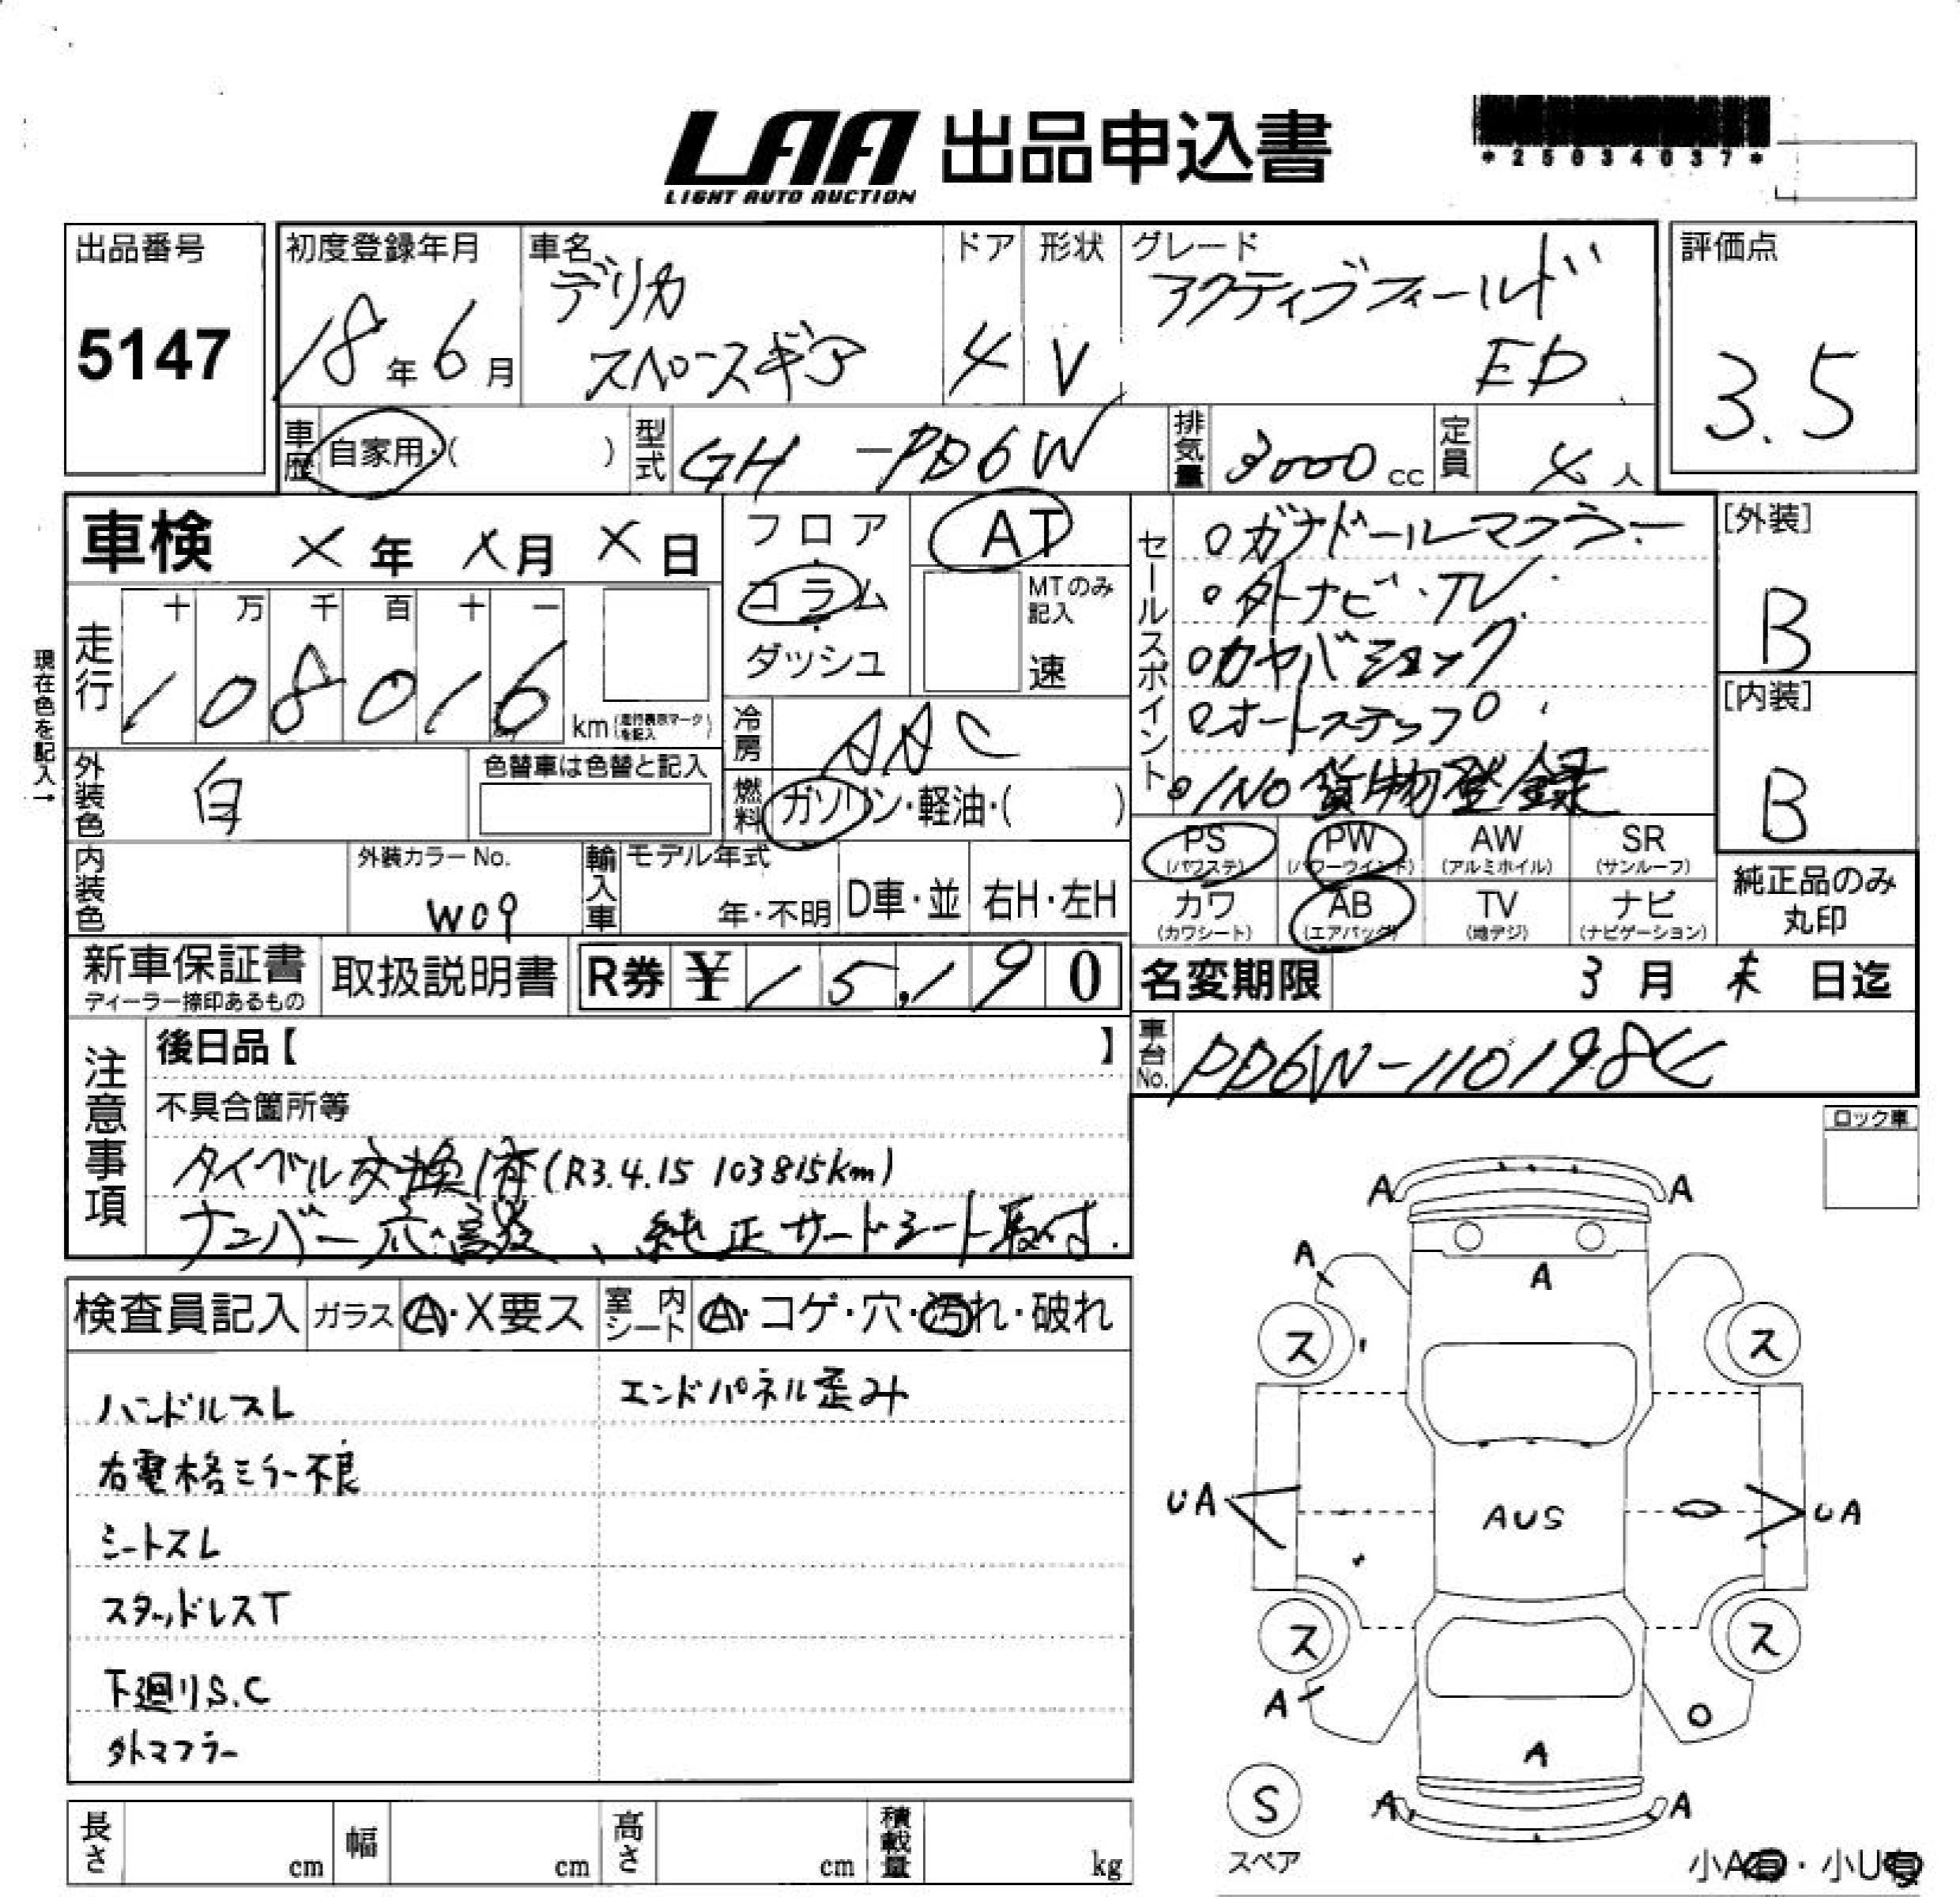 LAA 出品申込書
LIGHT AUTO AUCTION
*25034037*
出品番号
5147
初度登録年月
18年6月
車名
デリカ
スペースギア
ドア
4
形状
V
グレード
アクティブフィールド
ED
評価点
3.5
車歴
自家用・( )
型式
GH-PD6W
排気量
3000cc
定員
4人
車検 X年X月X日
フロア
コラム
ダッシュ
AT
MTのみ記入
速
セールスポイント
○ガナドールマフラー
○外ナビ・TV.
○カヤバショック
○オートステップ
○1NO貨物登録
[外装]
B
[内装]
B
現在色を記入→
走行
十 万 千 百 十 一
108016
km(走行表示マークを記入)
冷房
AAC
燃料
ガソリン・軽油・( )
外装色
白
色替車は色替と記入
内装色
外装カラーNo.
W09
輸入車
モデル年式
年・不明
D車・並
右H・左H
PS
(パワステ)
PW
(パワーウインド)
AW
(アルミホイル)
SR
(サンルーフ)
カワ
(カワシート)
AB
(エアバック)
TV
(地デジ)
ナビ
(ナビゲーション)
純正品のみ
丸印
新車保証書
ディーラー捺印あるもの
取扱説明書
R券 ¥15,190
名変期限 3月末日迄
車台No.
注意事項
後日品【 】
不具合箇所等
タイベル交換済(R3.4.15 103815km)
ナンバー応談、純正サードシート取付.
ロック車
検査員記入
ガラス
A・X要ス
室内シート
A・コゲ・穴・汚れ・破れ
ハンドルスレ
エンドパネル歪み
右電格ミラー不良
シートスレ
スタッドレスT
下廻りS.C
外マフラー
A A
A
A
ス ス
UA
AUS
UA
ス ス
A
A
S
スペア
A A
小A有・小U有
長さ
cm
幅
cm
高さ
cm
積載量
kg